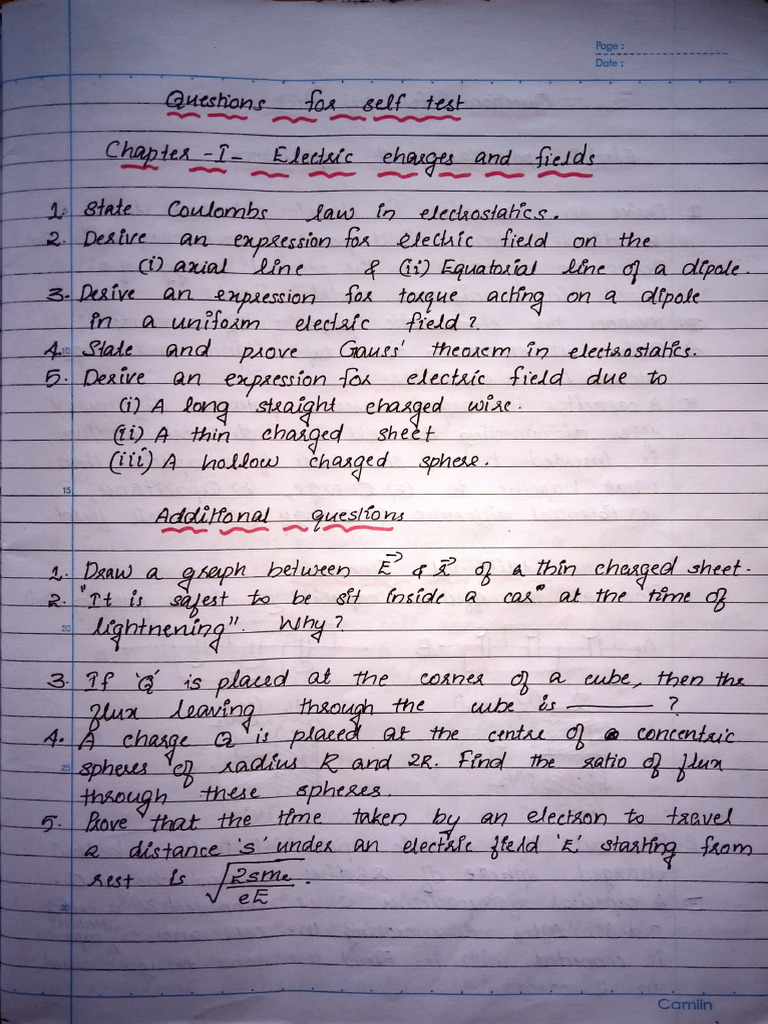 Page :
Date :
Questions for self test
Chapter - I - Electric charges and fields
1. State Coulombs law in electrostatics.
2. Derive an expression for electric field on the
(i) axial line & (ii) Equatorial line of a dipole.
3. Derive an expression for torque acting on a dipole
in a uniform electric field?
4. State and prove Gauss' theorem in electrostatics.
10
5. Derive an expression for electric field due to
(i) A long straight charged wire.
(ii) A thin charged sheet
(iii) A hollow charged sphere.
15
Additional questions
1. Draw a graph between E⃗ & r⃗ of a thin charged sheet.
2. "It is safest to be sit inside a car" at the time of
20
lightnening". Why?
3. If 'Q' is placed at the corner of a cube, then the
flux leaving through the cube is ——— ?
4. A charge Q is placed at the centre of concentric
25
spheres of radius R and 2R. Find the ratio of flux
through these spheres.
5. Prove that the time taken by an electron to travel
a distance 's' under an electric field 'E' starting from
rest is √(2sme/eE).
30
Camlin